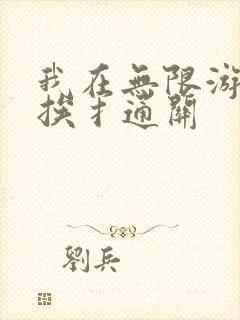 我在無限游
挨扌通關
劉兵